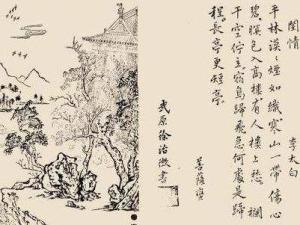 閨情 李太白
平林漠漠煙如織寒山一帶傷心
碧暝色入高樓有人樓上愁 欄
干空佇立宿鳥歸飛急何處是歸
程長亭更短亭
菩薩蠻
武原徐治書